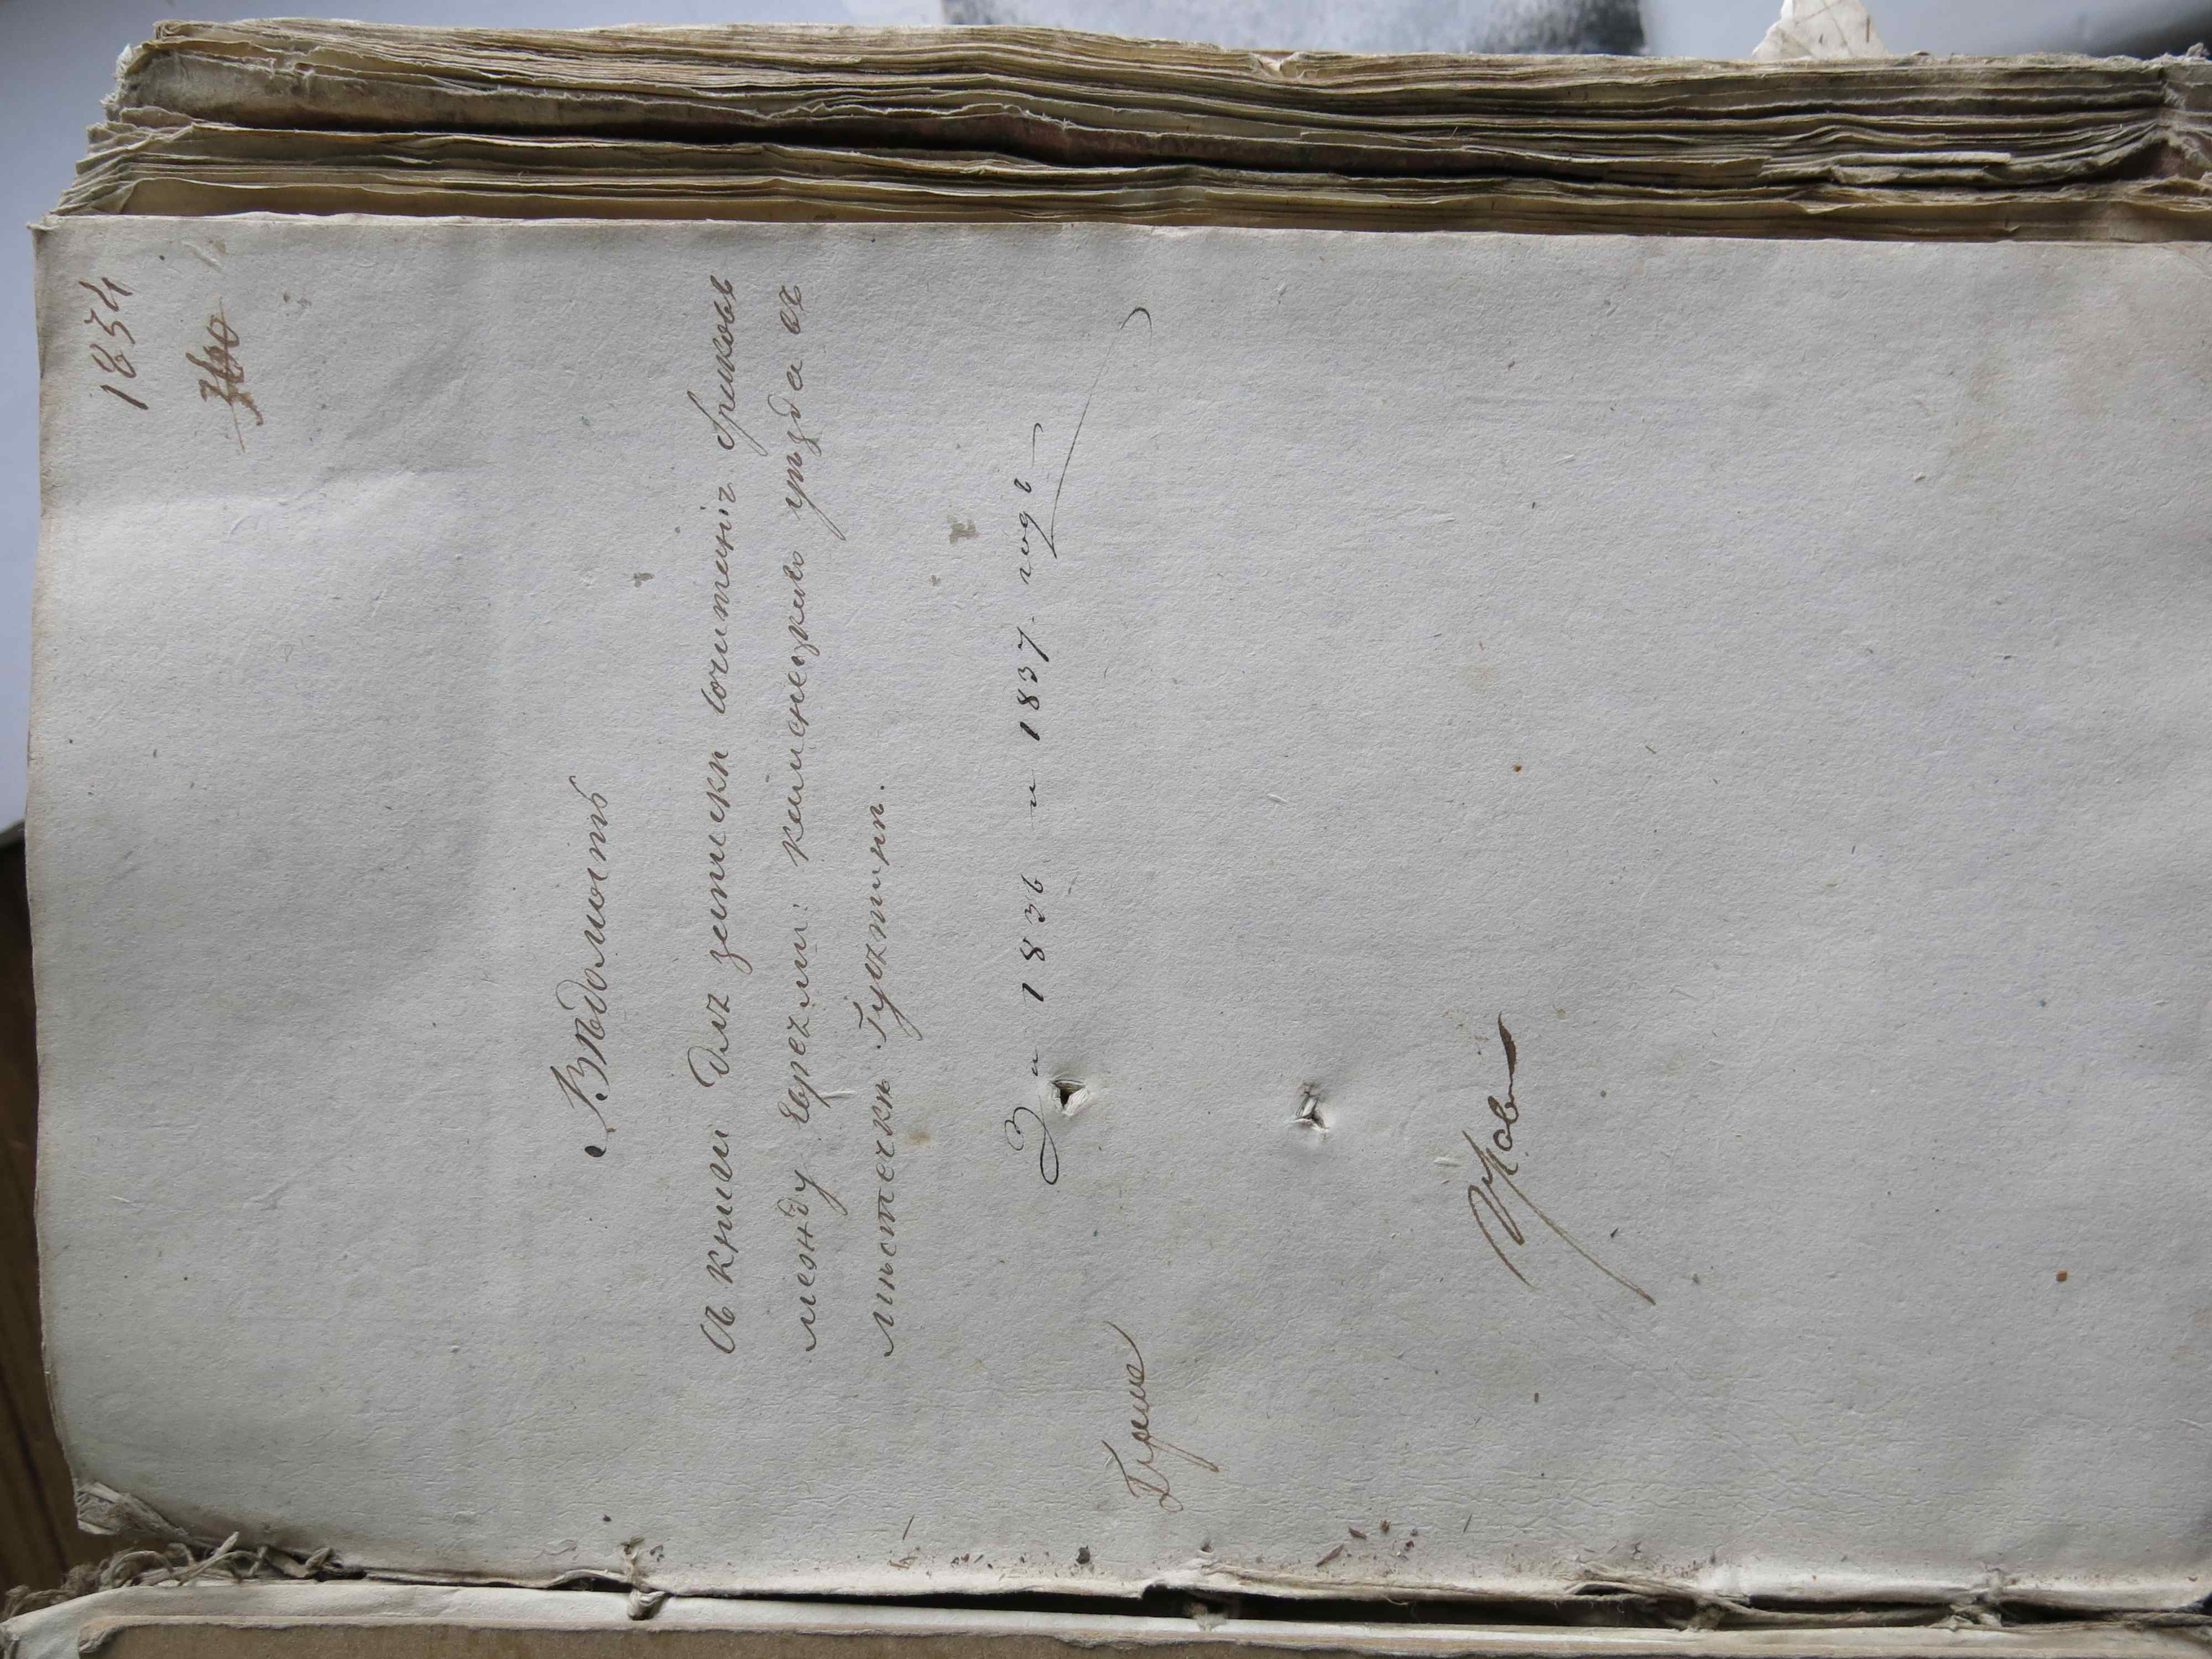 1854
Вѣдомость
Съ книги для записки сочитанія браковъ
между евреями каменецкаго уѣзда въ
мѣстечкѣ Гусятинѣ.
За 1836 и 1837 годъ